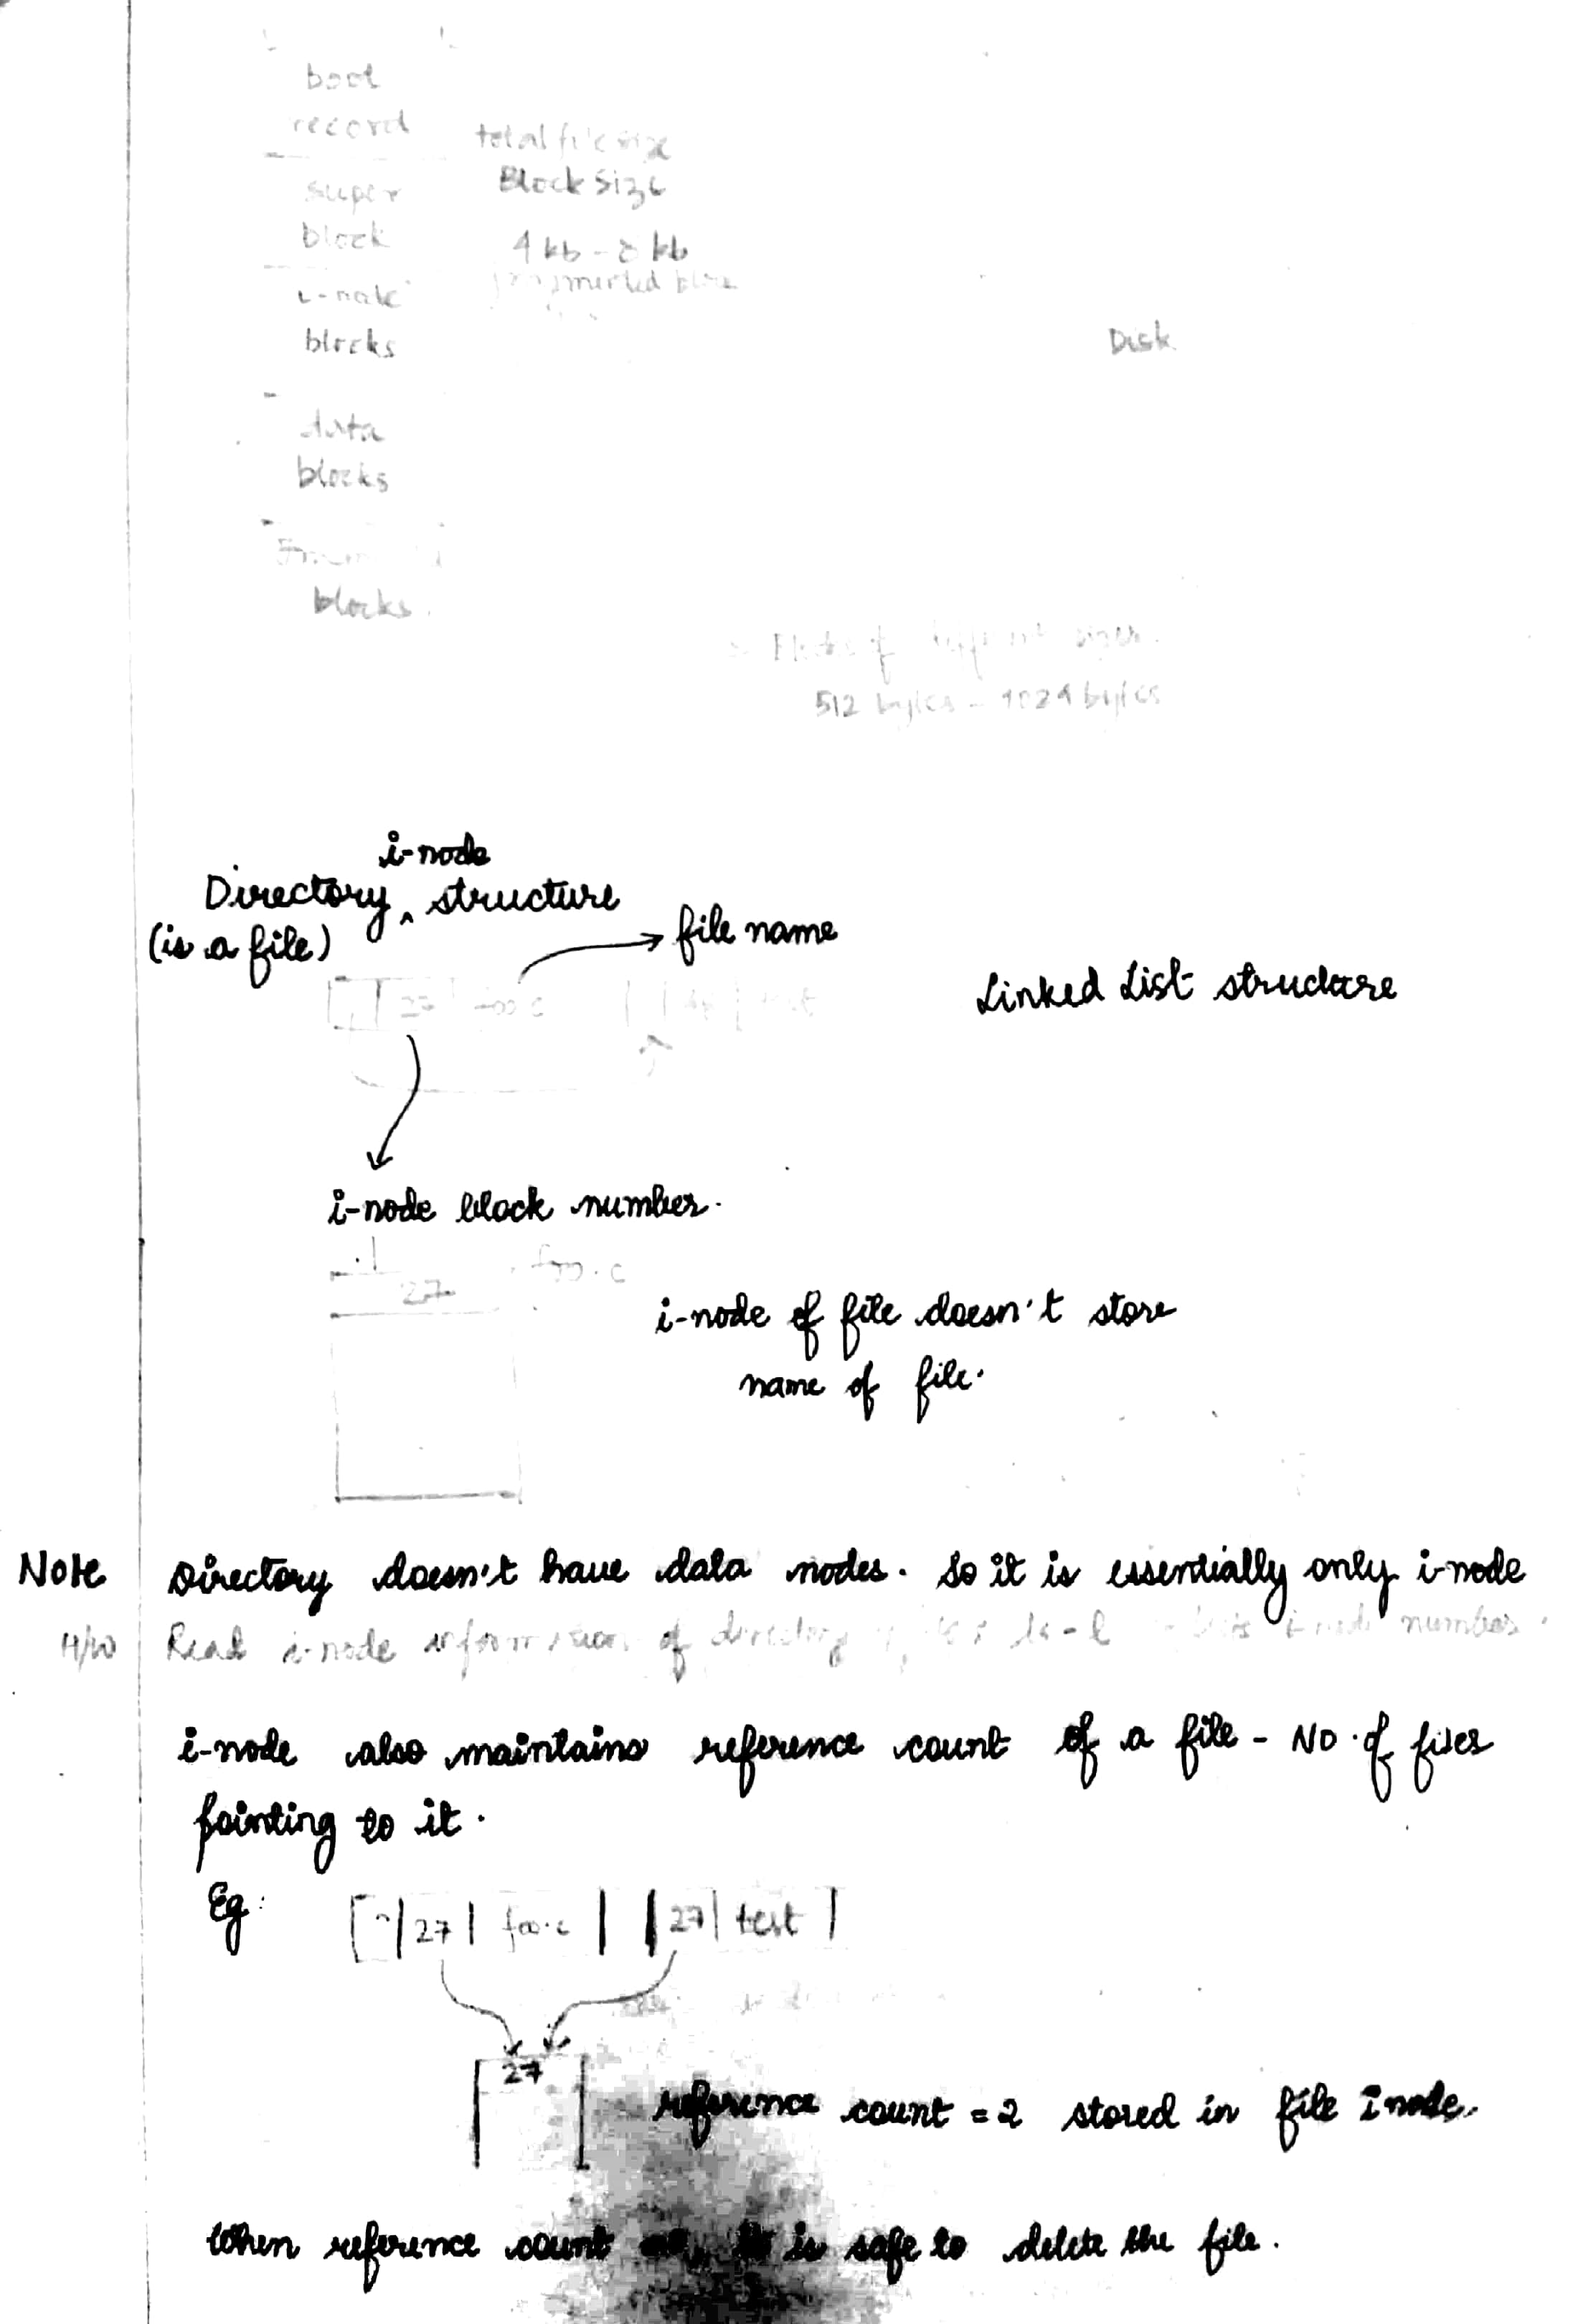 boot
record
total file size
super
Block Size
block
4 kb - 8 kb
i-node
blocks
Disk
data
blocks
blocks
512 bytes - 1024 bytes
i-node
Directory ^ structure
(is a file)
file name
Linked List structure
27 foo.c
i-node block number.
foo.c
27
i-node of file doesn't store
name of file.
Note Directory doesn't have data nodes. So it is essentially only i-node
H/W Read i-node information of directory ls -l i-node number.
i-node also maintains reference count of a file - No. of files
pointing to it.
Eg: 27 foo.c 27 test
27
reference count = 2 stored in file inode.
When reference count is safe to delete the file.